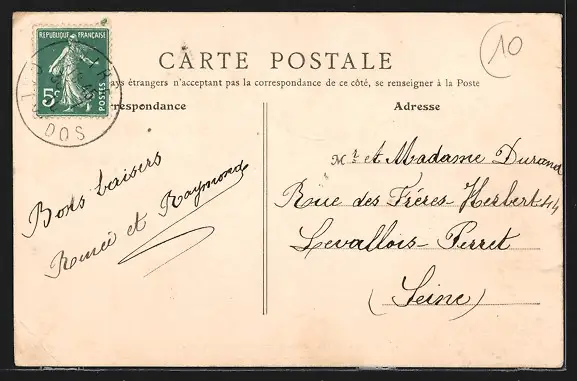 REPUBLIQUE FRANÇAISE
5c
POSTES
DOS
10
CARTE POSTALE
ays étrangers n'acceptent pas la correspondance de ce côté, se renseigner à la Poste
respondance
Adresse
Bons baisers
Renée et Raymond
Mr et Madame Durand
Rue des Fréres Herbert 44
Levallois-Perret
(Seine)